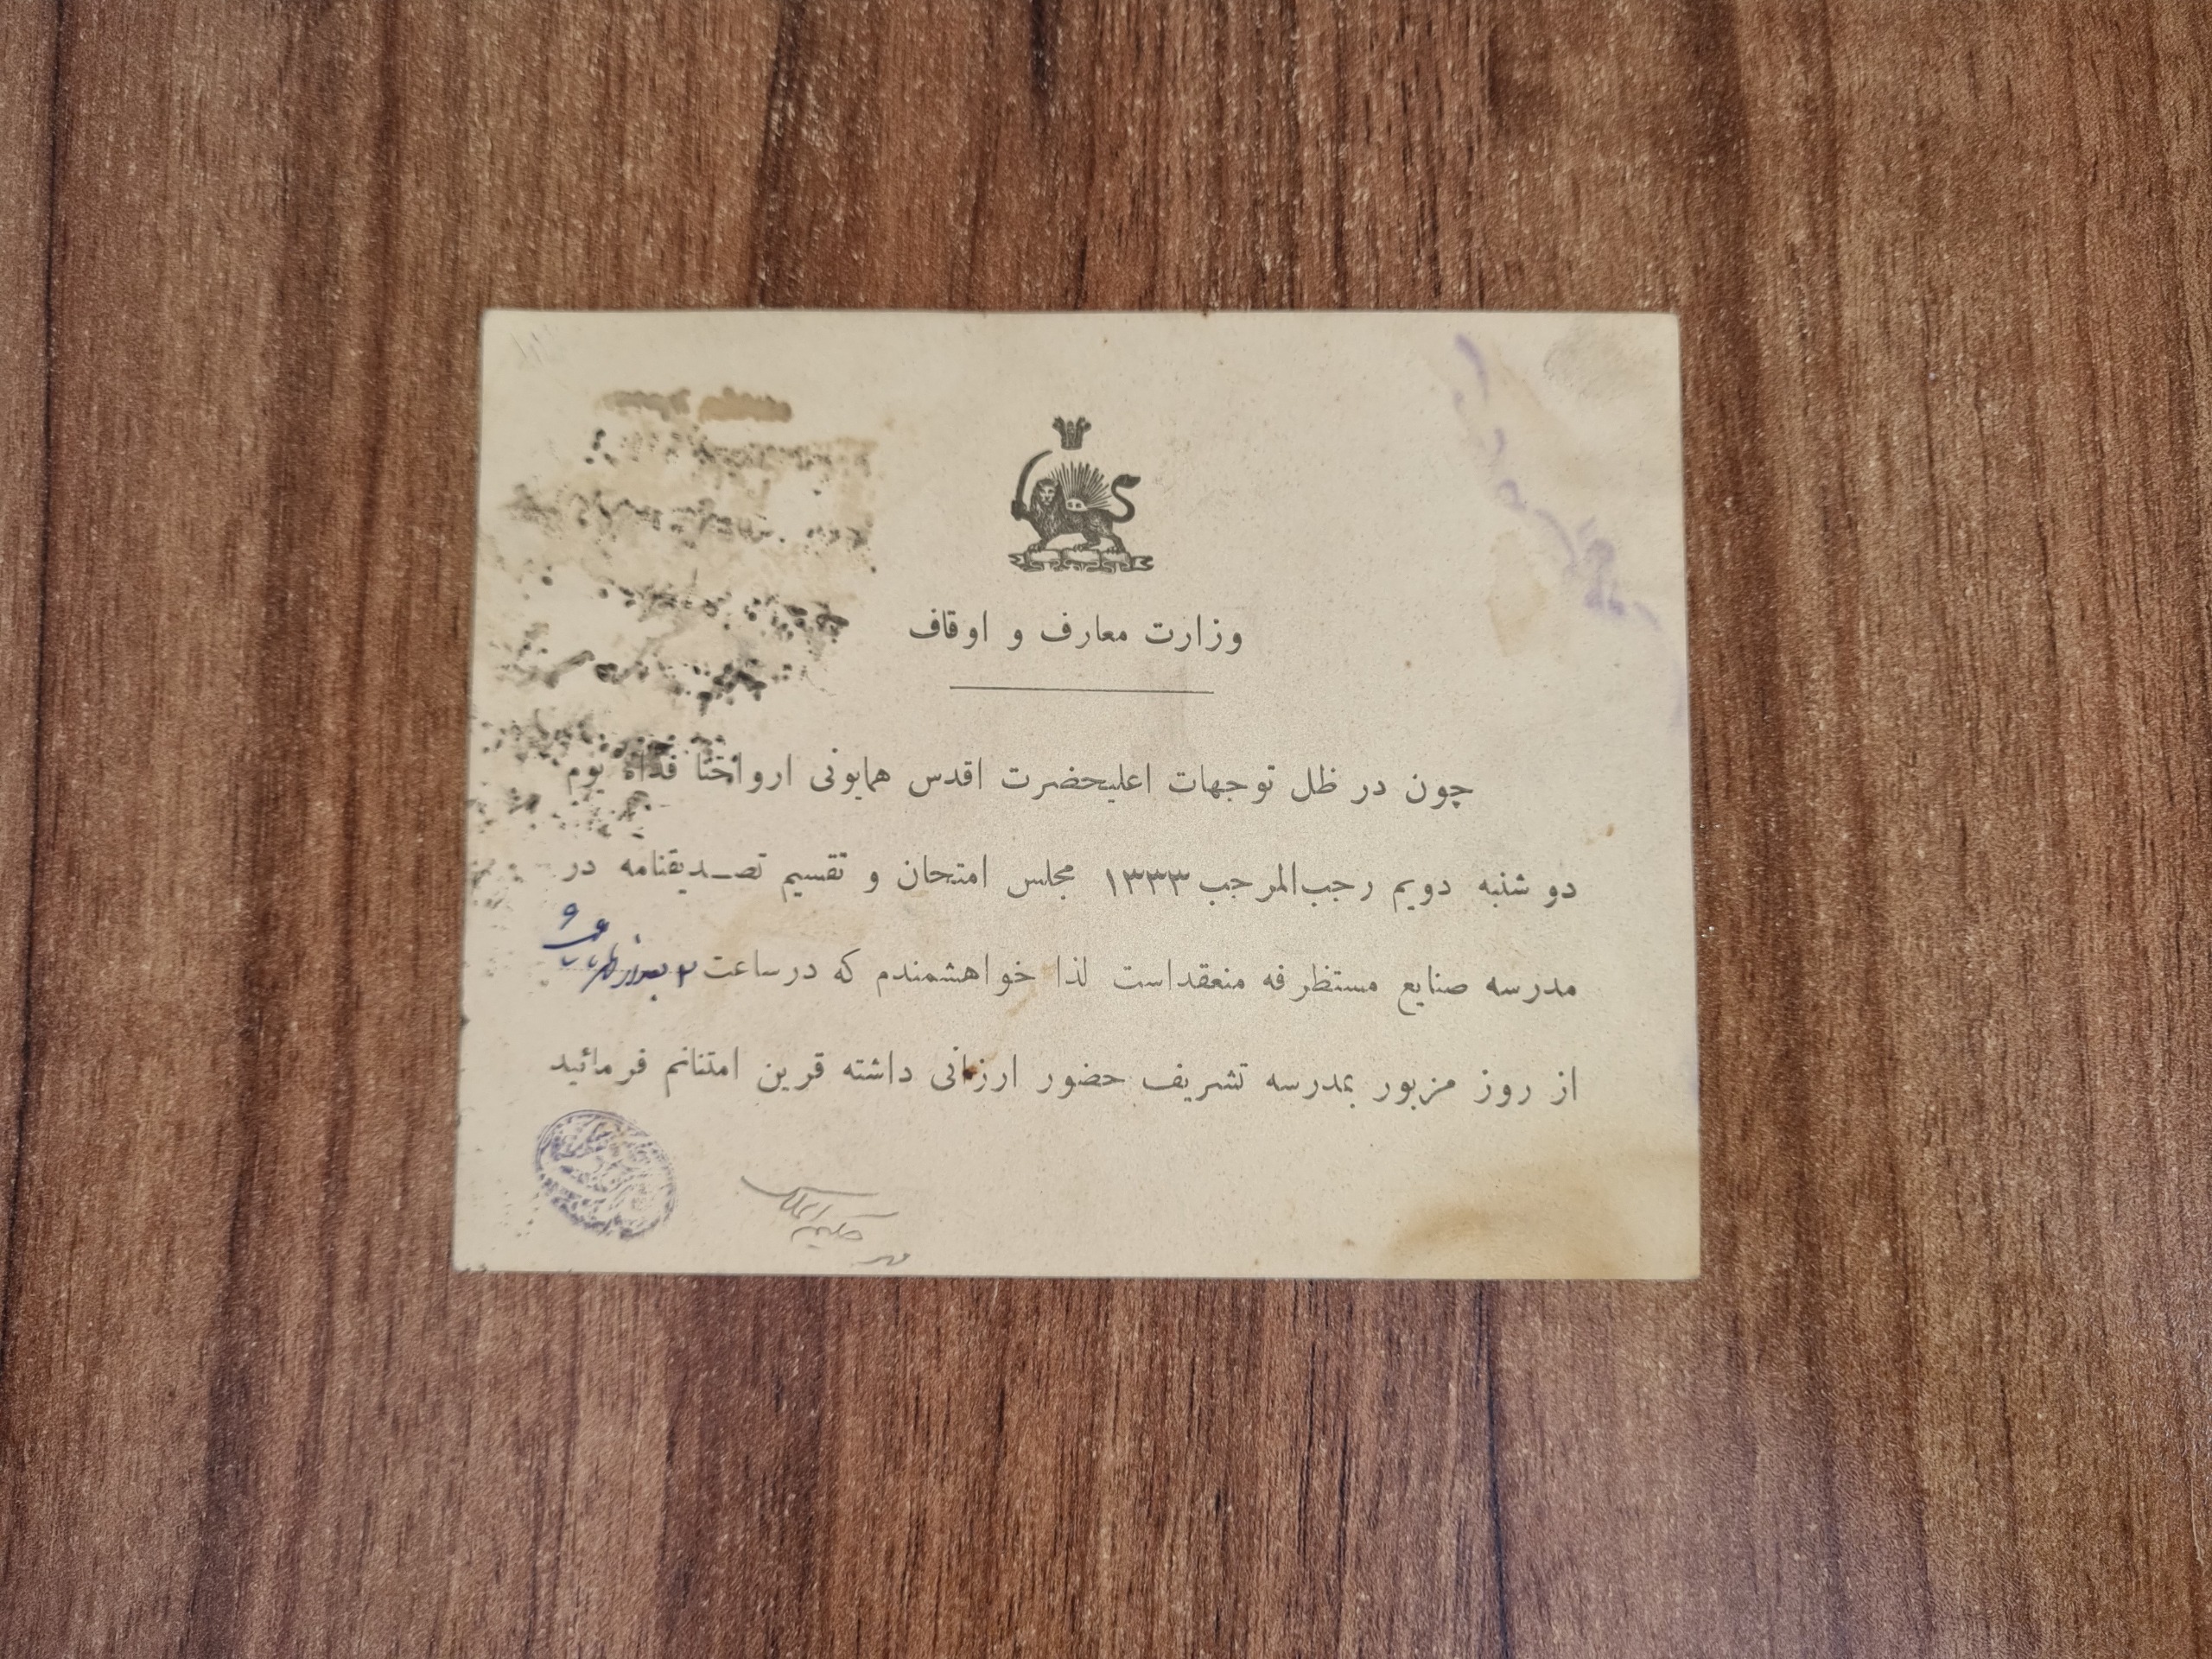 وزارت معارف و اوقاف
چون در ظل توجهات اعلیحضرت اقدس همایونی ارواحنا فداه یوم
دو شنبه دویم رجب‌المرجب ۱۳۳۳ مجلس امتحان و تقسیم تصـدیقنامه در
مدرسه صنایع مستظرفه منعقداست لذا خواهشمندم که در ساعت ۲ بعد از ظهر
از روز مزبور بمدرسه تشریف حضور ارزانی داشته قرین امتنانم فرمائید
حکیم الملک
مهر